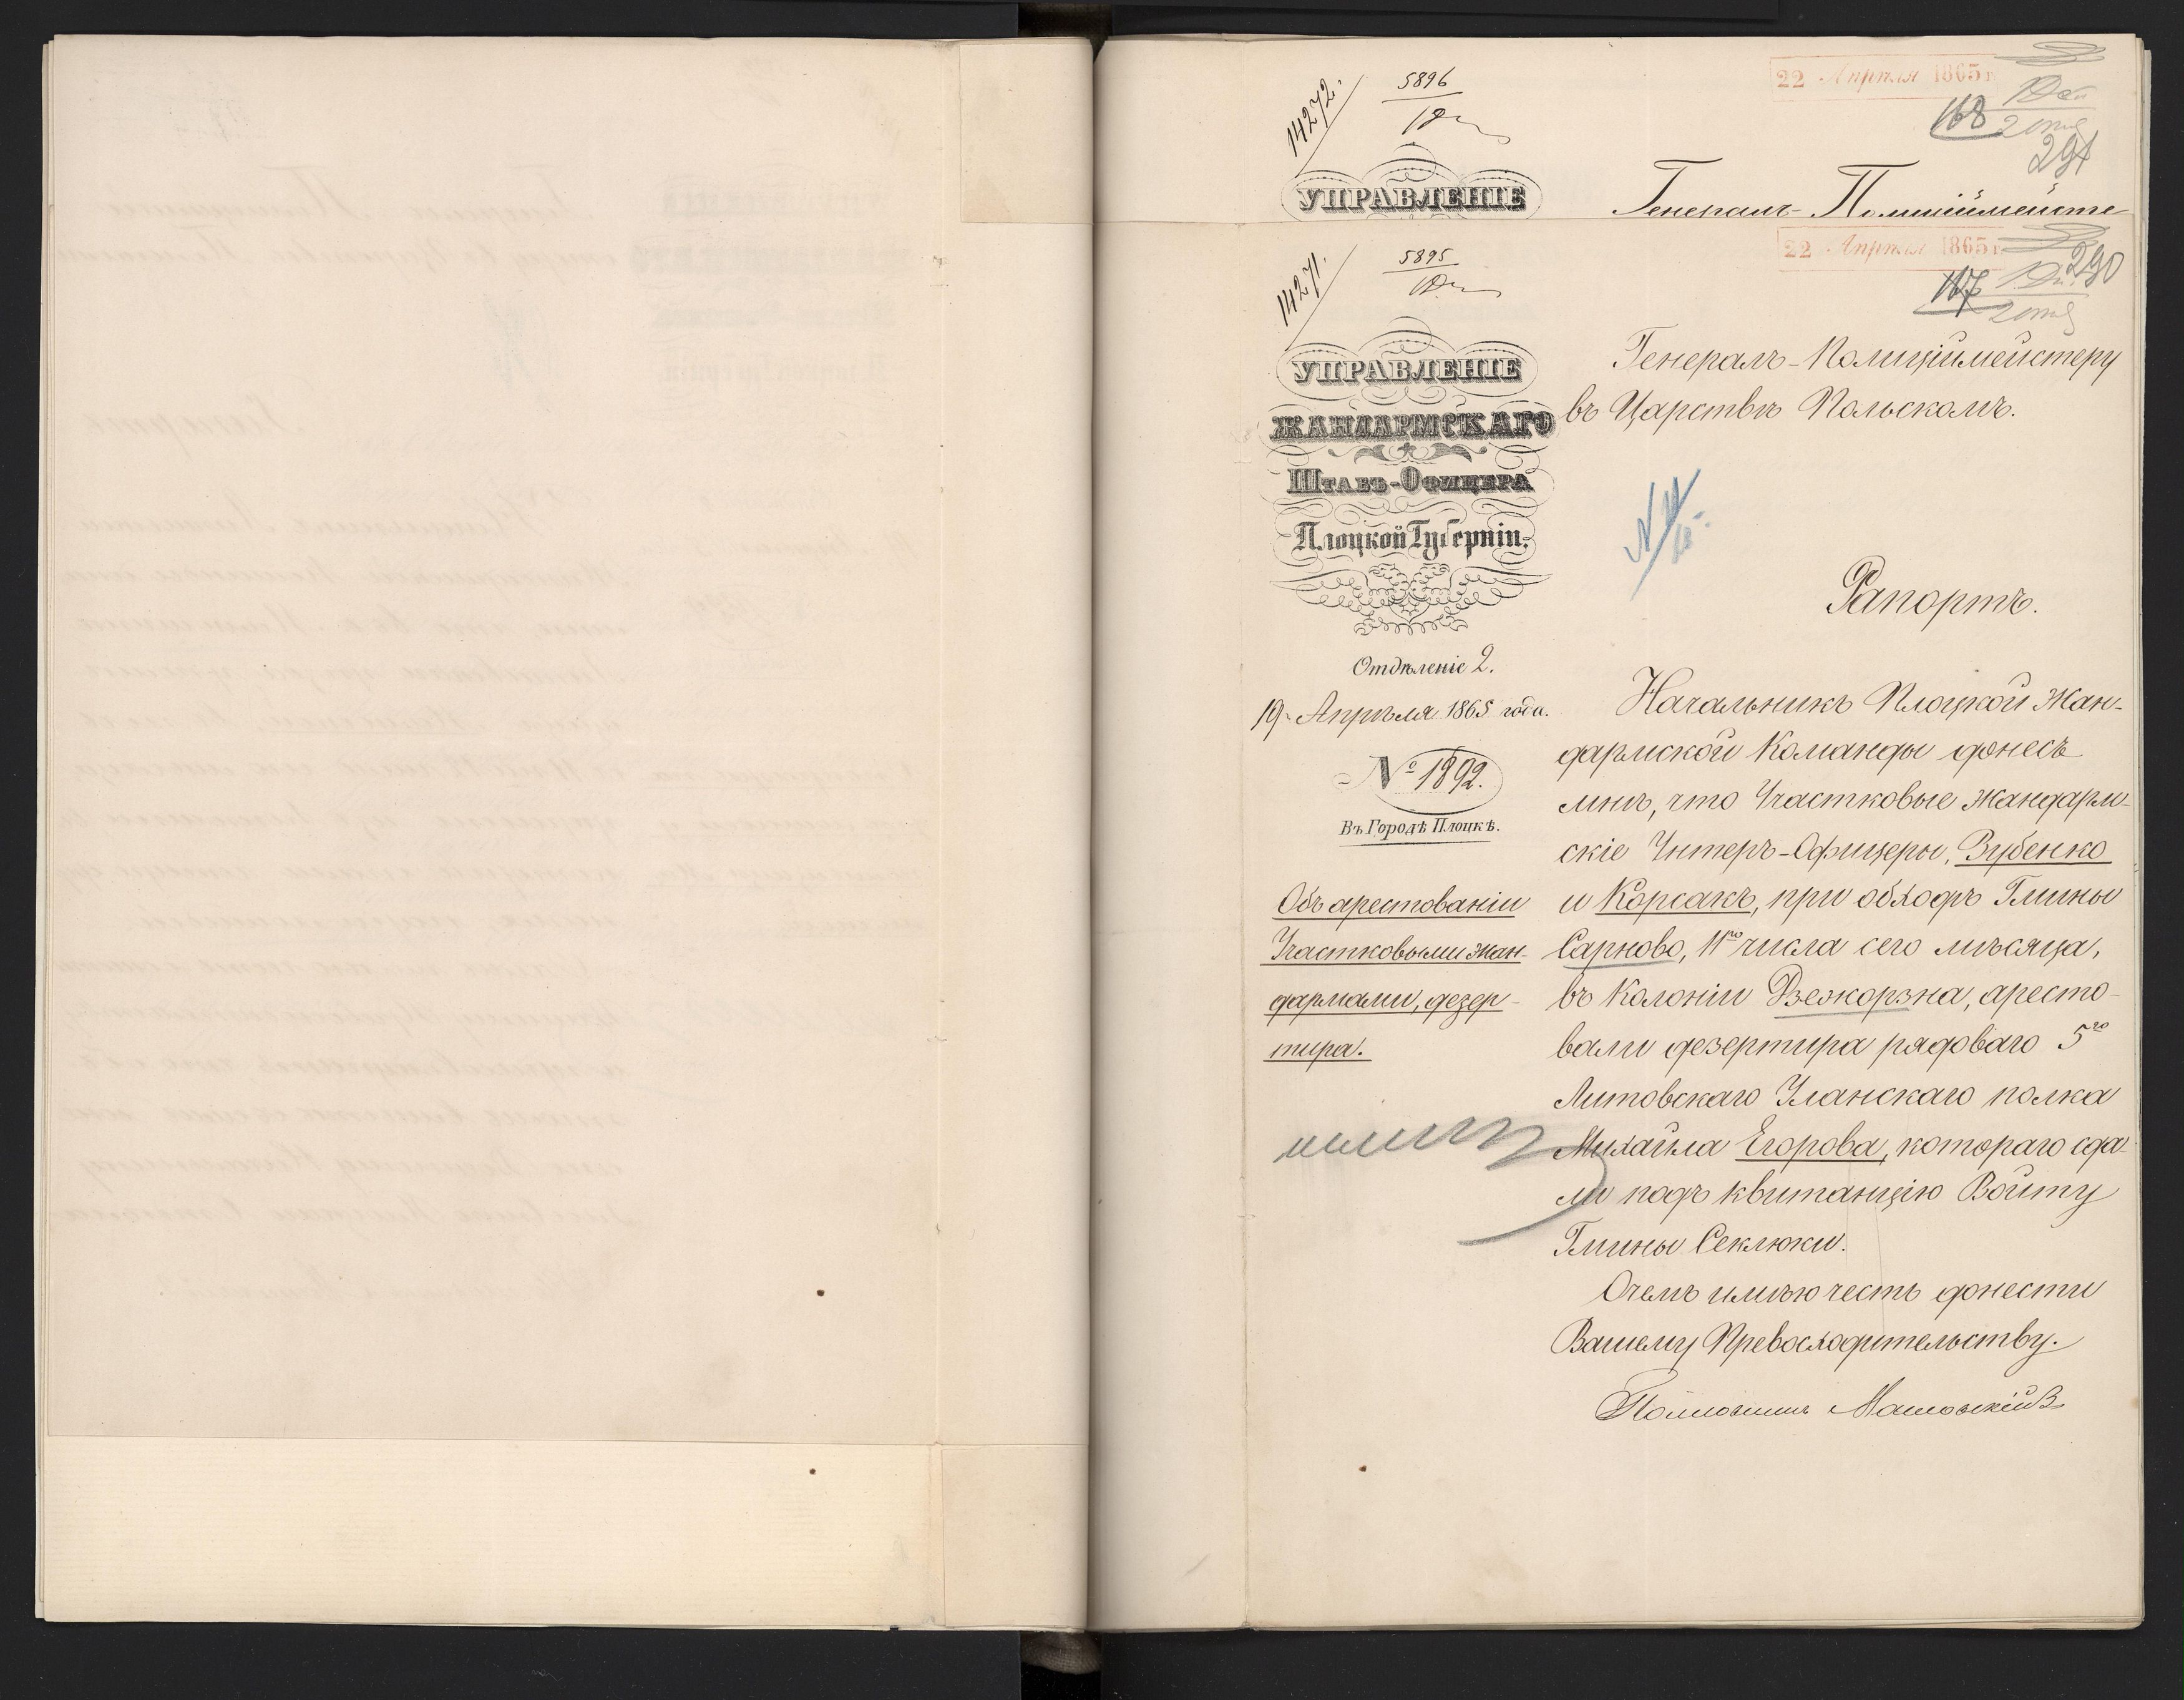 14272.
5896
22 Апрѣля 1865 г.
168
291
УПРАВЛЕНІЕ
Генералъ-Полиціймейсте
14271.
5895
22 Апрѣля 1865 г.
290
167
УПРАВЛЕНІЕ
ЖАНДАРМСКАГО
Штабъ-Офицера
Плоцкой Губерніи.
Отдѣленіе 2.
19 Апрѣля 1865 года.
№ 1892.
Въ Городѣ Плоцкѣ.
Объ арестованіи
Участковыми Жан-
дармами, дезер-
тира.
Генералъ-Полиціймейстеру
въ Царствѣ Польскомъ.
Рапортъ.
Начальникъ Плоцкой Жан-
дармской Команды донесъ
мнѣ, что Участковые Жандарм-
скіе Унтеръ-Офицеры, Зубенко
и Корсакъ, при обходѣ Гмины
Сарново, 11го числа сего мѣсяца,
въ Колоніи Дзежорзна, аресто-
вали дезертира рядоваго 5го
Литовскаго Уланскаго полка
Михайла Егорова, котораго сда-
ли подъ квитанцію Войту
Гмины Секлюки.
О чемъ имѣю честь донести
Вашему Превосходительству.